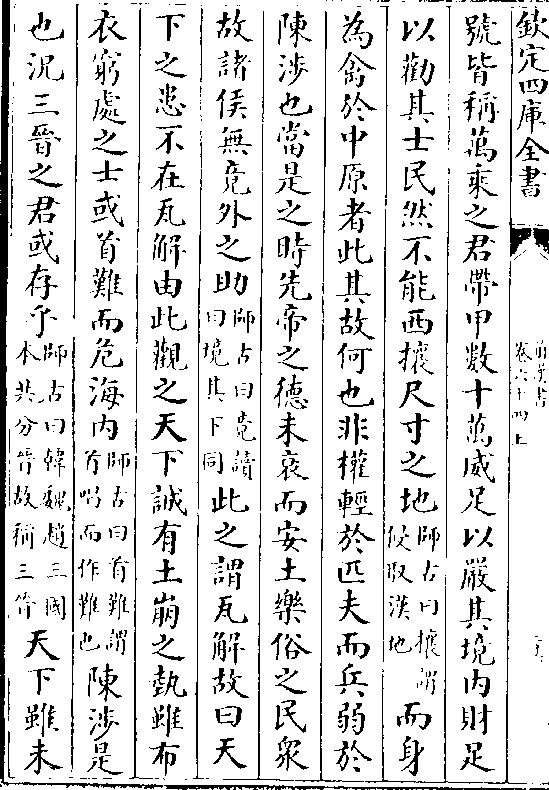 欽定四庫全書
前漢書
卷六十四上
號皆稱萬乘之君帶甲數十萬威足以嚴其境内財足
以勸其士民然不能西攘尺寸之地師古曰攘謂侵取漢地而身
為禽於中原者此其故何也非權輕於匹夫而兵弱於
陳涉也當是之時先帝之德未衰而安土樂俗之民衆
故諸侯無竟外之助師古曰竟讀曰境其下同此之謂瓦解故曰天
下之患不在瓦解由此觀之天下誠有土崩之埶雖布
衣窮處之士或首難而危海内師古曰首難謂首唱而作難也陳涉是
也況三晉之君或存乎師古曰韓魏趙三國本共分晉故稱三晉天下雖未